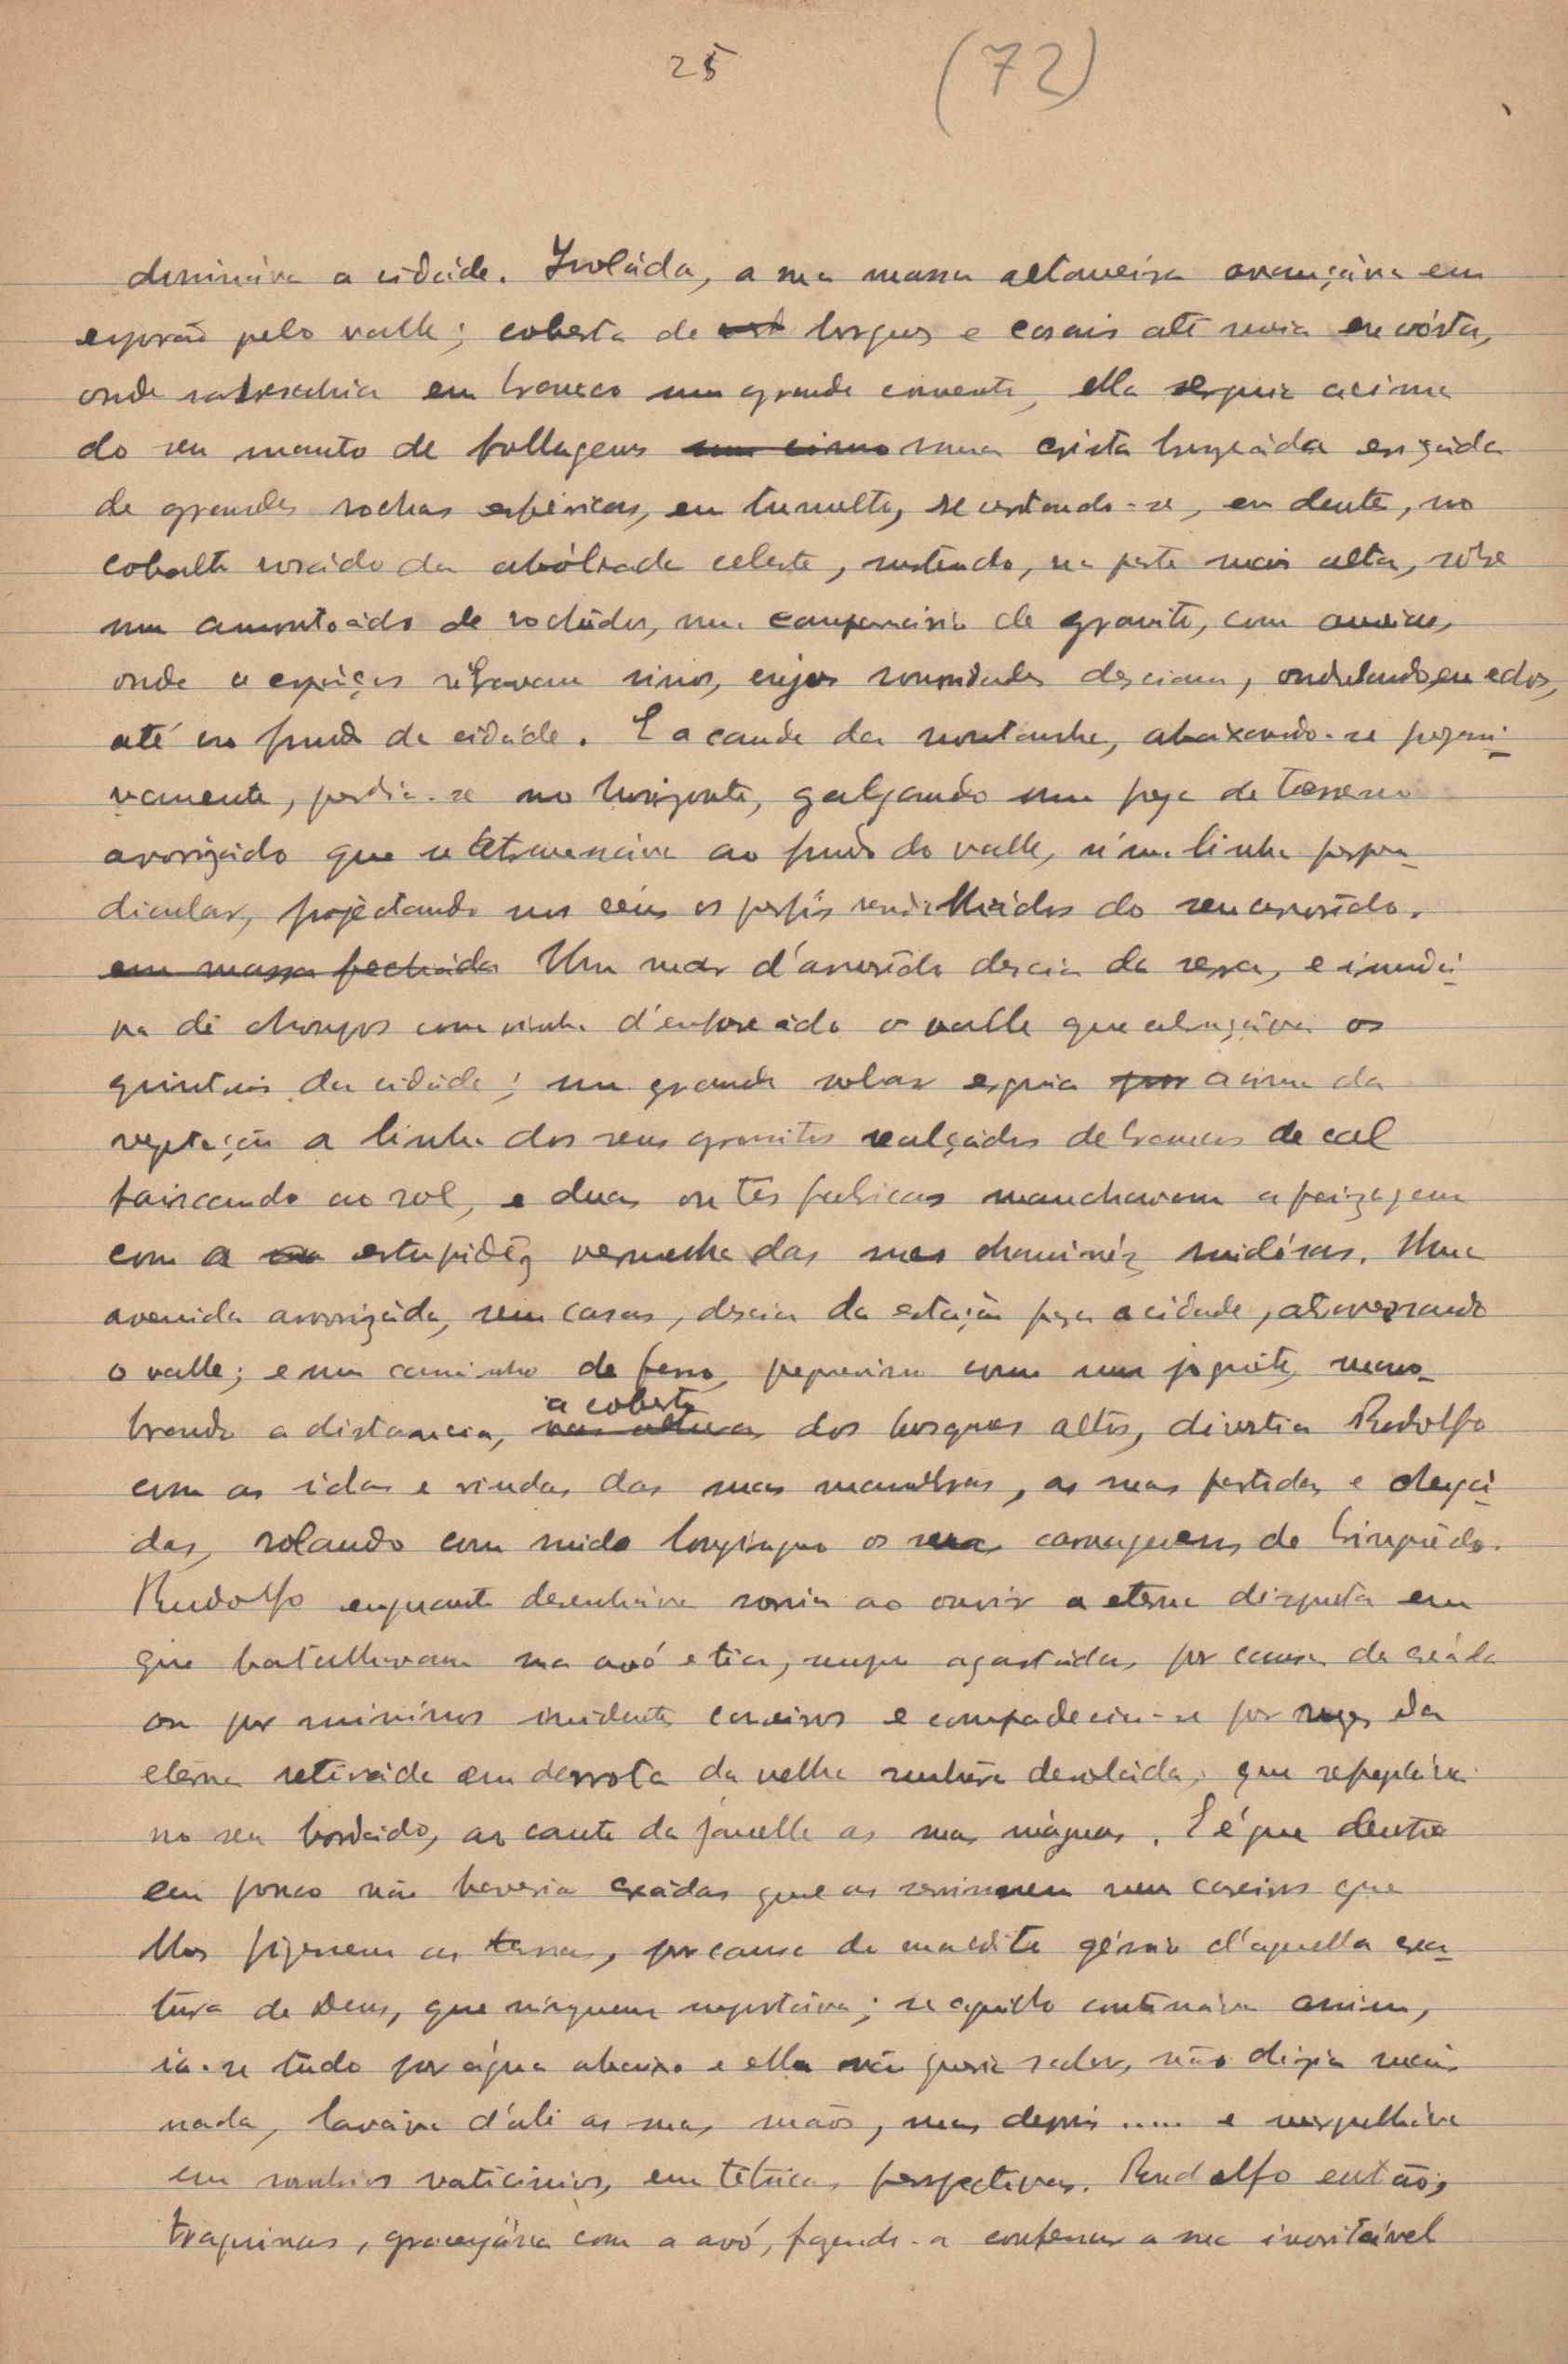 25 (72)
domináva a cidáde. Isoláda, a sua massa altaneira avançáva em
esporão pelo valle; coberta de bosques e casais até meia encósta,
onde sobresahia em branco um grande convento, ella erguia acima
do seu manto de folhagens uma crista bronzeáda erigáda
de grandes rochas esféricas, em tumulto, recortando-se, em dente, no
cobalto rosádo da abóbada celeste, sustendo, na parte mais alta, sôbre
um amontoádo de rochêdos, um campanário de granito, com ameias,
onde a espáços rezavam sinos, cujas sonoridades desciam, ondulando, em echos,
até ao fundo da cidáde. E a cauda da montanha, abaixando-se progressi-
vamente, perdia-se no horizonte, galgando uma faxa de terreno
arvorizádo que se atravessáva ao fundo do valle, n'uma linha perpen-
dicular, projectando nos céus os perfis rendilhádos do seu arvorêdo.
em massa fecháda Um mar d'arvorêdo descia da serra, e inundá-
va de choupos com vinha d'enforcádo o valle que abraçáva os
quintais da cidáde; um grande solar erguia acima da
vegetação a linha dos seus granitos realçádos de brancos de cal
faiscando ao sol, e duas ou tês fabricas manchavam a paizagem
com a estupidêz vermelha das suas chaminés ruidósas. Uma
avenida arvorizáda, sem casas, descia da estação para a cidade, atravessando
o valle; e um caminho de ferro, pequenino como um joguête, mano-
brando a distancia, a coberto dos bosques altos, divertia Rudolfo
com as idas e vindas das suas manóbras, as suas partidas e chegá-
das, rolando com ruido longinquo os seus carruagens de brinquêdo.
Rudolfo enquanto desenháva sorria ao ouvir a eterna disputa em
que batalhavam sua avó e tia, sempre agastádas por causa da creáda
ou por minimos incidentes caseiros e compadecia-se por vezes da
eterna retiráda em derrota da velha senhôra desoláda, que refugiáva
no seu bordádo, ao canto da janella as suas máguas. E é que dentro
em pouco não haveria creádas que as servissem nem caseiros que
lhes fizessem as terras, por causa do maldito génio d'aquella crea-
tura de Deus, que ninguem suportáva; se aquillo continuáva assim,
ia-se tudo por água abaixo e ella não queria saber, não dizia mais
nada, laváva d'ali as suas mãos, mas depois ..... e mergulháva
em sombrios vaticinios, em tétricas perspectivas. Rudolfo então,
traquinas, gracejáva com a avó, fazendo-a confessar a sua inevitável